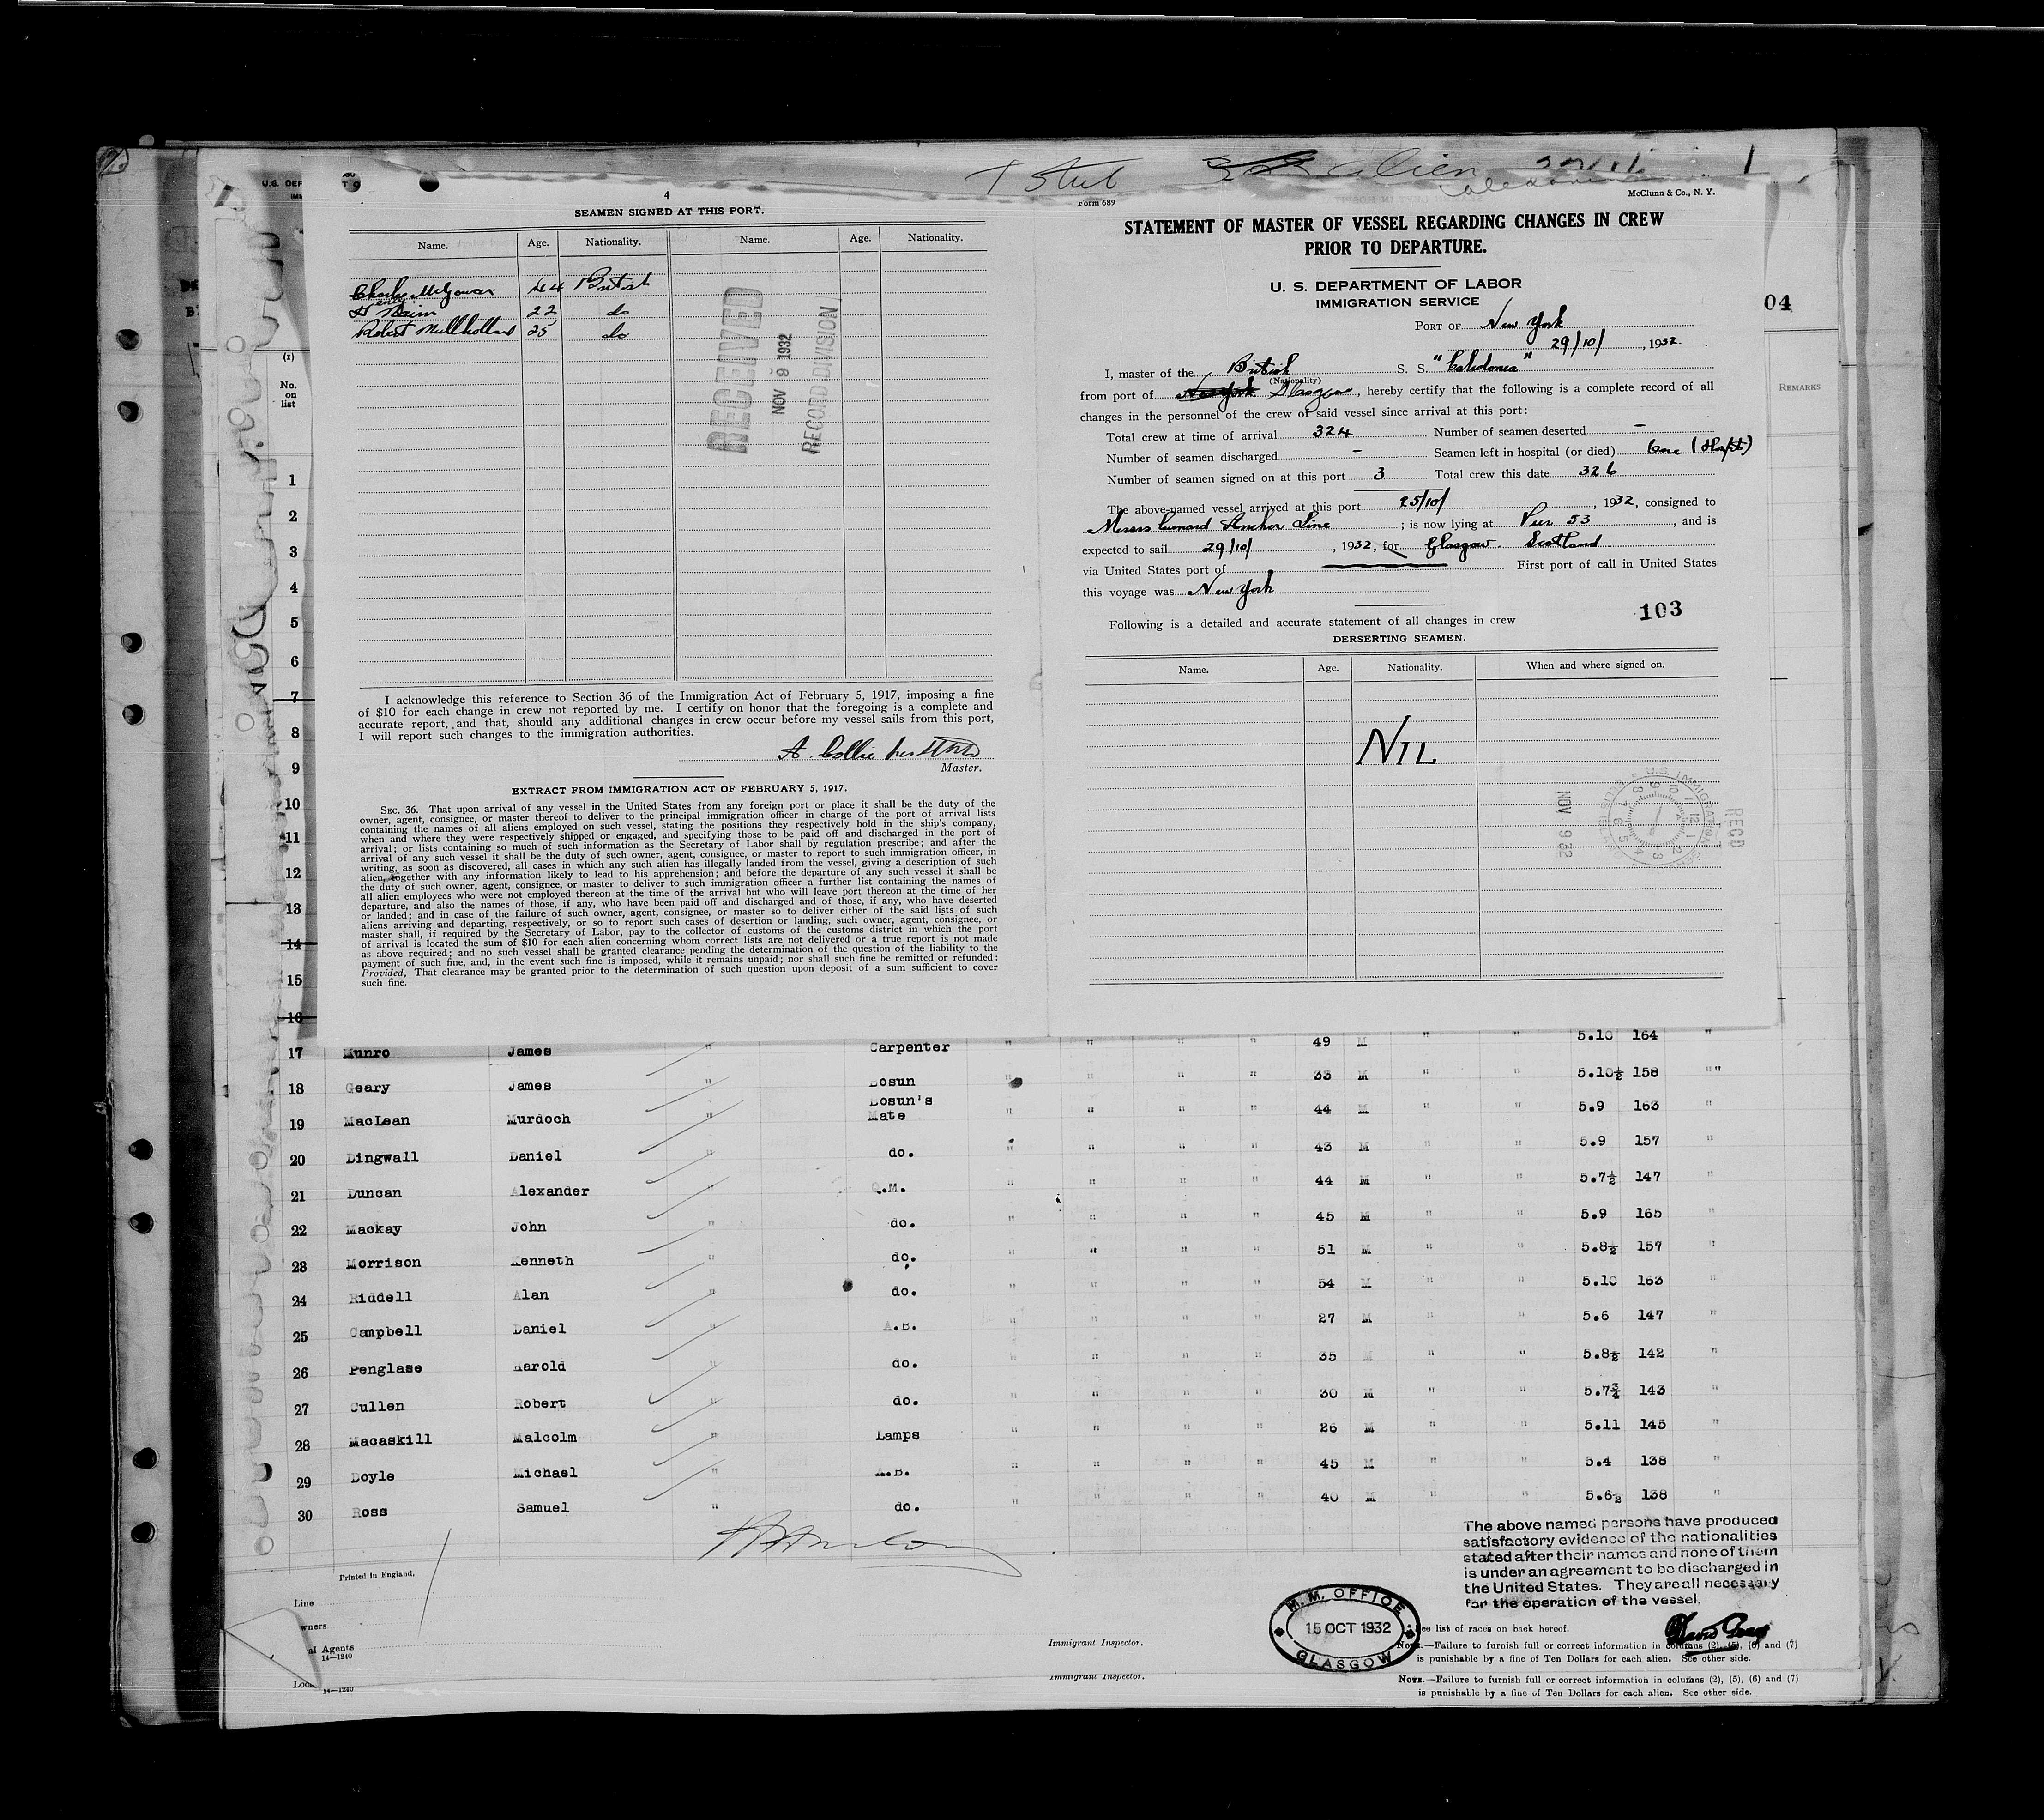 4
SEAMEN SIGNED AT THIS PORT.
Name. Age. Nationality. Name. Age. Nationality.
Charles McGowan 44 British
H Nairn 22 do
Robert Mullholland 25 do
RECEIVED
NOV 9 1932
RECORD DIVISION
I acknowledge this reference to Section 36 of the Immigration Act of February 5, 1917, imposing a fine
of $10 for each change in crew not reported by me. I certify on honor that the foregoing is a complete and
accurate report, and that, should any additional changes in crew occur before my vessel sails from this port,
I will report such changes to the immigration authorities.
A. Collie
Master.
EXTRACT FROM IMMIGRATION ACT OF FEBRUARY 5, 1917.
SEC. 36. That upon arrival of any vessel in the United States from any foreign port or place it shall be the duty of the
owner, agent, consignee, or master thereof to deliver to the principal immigration officer in charge of the port of arrival lists
containing the names of all aliens employed on such vessel, stating the positions they respectively hold in the ship's company,
when and where they were respectively shipped or engaged, and specifying those to be paid off and discharged in the port of
arrival; or lists containing so much of such information as the Secretary of Labor shall by regulation prescribe; and after the
arrival of any such vessel it shall be the duty of such owner, agent, consignee, or master to report to such immigration officer, in
writing, as soon as discovered, all cases in which any such alien has illegally landed from the vessel, giving a description of such
alien, together with any information likely to lead to his apprehension; and before the departure of any such vessel it shall be
the duty of such owner, agent, consignee, or master to deliver to such immigration officer a further list containing the names of
all alien employees who were not employed thereon at the time of the arrival but who will leave port thereon at the time of her
departure, and also the names of those, if any, who have been paid off and discharged and of those, if any, who have deserted
or landed; and in case of the failure of such owner, agent, consignee, or master so to deliver either of the said lists of such
aliens arriving and departing, respectively, or so to report such cases of desertion or landing, such owner, agent, consignee, or
master shall, if required by the Secretary of Labor, pay to the collector of customs of the customs district in which the port
of arrival is located the sum of $10 for each alien concerning whom correct lists are not delivered or a true report is not made
as above required; and no such vessel shall be granted clearance pending the determination of the question of the liability to the
payment of such fine, and, in the event such fine is imposed, while it remains unpaid; nor shall such fine be remitted or refunded:
Provided, That clearance may be granted prior to the determination of such question upon deposit of a sum sufficient to cover
such fine.
Form 689 McClunn & Co., N. Y.
STATEMENT OF MASTER OF VESSEL REGARDING CHANGES IN CREW
PRIOR TO DEPARTURE.
U. S. DEPARTMENT OF LABOR
IMMIGRATION SERVICE
PORT OF New York
29/10/, 1932.
I, master of the British S. S. "Caledonia"
(Nationality)
from port of New York Glasgow, hereby certify that the following is a complete record of all
changes in the personnel of the crew of said vessel since arrival at this port:
Total crew at time of arrival 324 Number of seamen deserted —
Number of seamen discharged — Seamen left in hospital (or died) One (Hospt)
Number of seamen signed on at this port 3 Total crew this date 326
The above-named vessel arrived at this port 25/10/, 1932, consigned to
Messrs Cunard Anchor Line; is now lying at Pier 53, and is
expected to sail 29/10/, 1932, for Glasgow. Scotland
via United States port of First port of call in United States
this voyage was New York
103
Following is a detailed and accurate statement of all changes in crew
DERSERTING SEAMEN.
Name. Age. Nationality. When and where signed on.
NIL
RECD
NOV 9 32
U.S. IMMIGRATION
04
REMARKS
(1)
No.
on
list
1
2
3
4
5
6
7
8
9
10
11
12
13
14
15
16
17 Munro James " Carpenter " " " " 49 M " " 5.10 164 "
18 Geary James " Bosun " " " " 33 M " " 5.10½ 158 "
19 MacLean Murdoch " Bosun's Mate " " " " 44 M " " 5.9 163 "
20 Dingwall Daniel " do. " " " " 43 M " " 5.9 157 "
21 Duncan Alexander " Q.M. " " " " 44 M " " 5.7½ 147 "
22 Mackay John " do. " " " " 45 M " " 5.9 165 "
23 Morrison Kenneth " do. " " " " 51 M " " 5.8½ 157 "
24 Riddell Alan " do. " " " " 54 M " " 5.10 163 "
25 Campbell Daniel " A.B. " " " " 27 M " " 5.6 147 "
26 Penglase Harold " do. " " " " 35 M " " 5.8½ 142 "
27 Cullen Robert " do. " " " " 30 M " " 5.7¾ 143 "
28 Macaskill Malcolm " Lamps " " " " 26 M " " 5.11 145 "
29 Doyle Michael " A.B. " " " " 45 M " " 5.4 138 "
30 Ross Samuel " do. " " " " 40 M " " 5.6½ 138 "
The above named persons have produced
satisfactory evidence of the nationalities
stated after their names and none of them
is under an agreement to be discharged in
the United States. They are all necessary
for the operation of the vessel.
David Gray
M.M. OFFICE
15 OCT 1932
GLASGOW
Printed in England.
Line
wners
al Agents
14—1240
Immigrant Inspector.
ee list of races on back hereof.
NOTE.—Failure to furnish full or correct information in columns (2), (5), (6) and (7)
is punishable by a fine of Ten Dollars for each alien. See other side.
14—1240
Immigrant Inspector.
NOTE.—Failure to furnish full or correct information in columns (2), (5), (6) and (7)
is punishable by a fine of Ten Dollars for each alien. See other side.